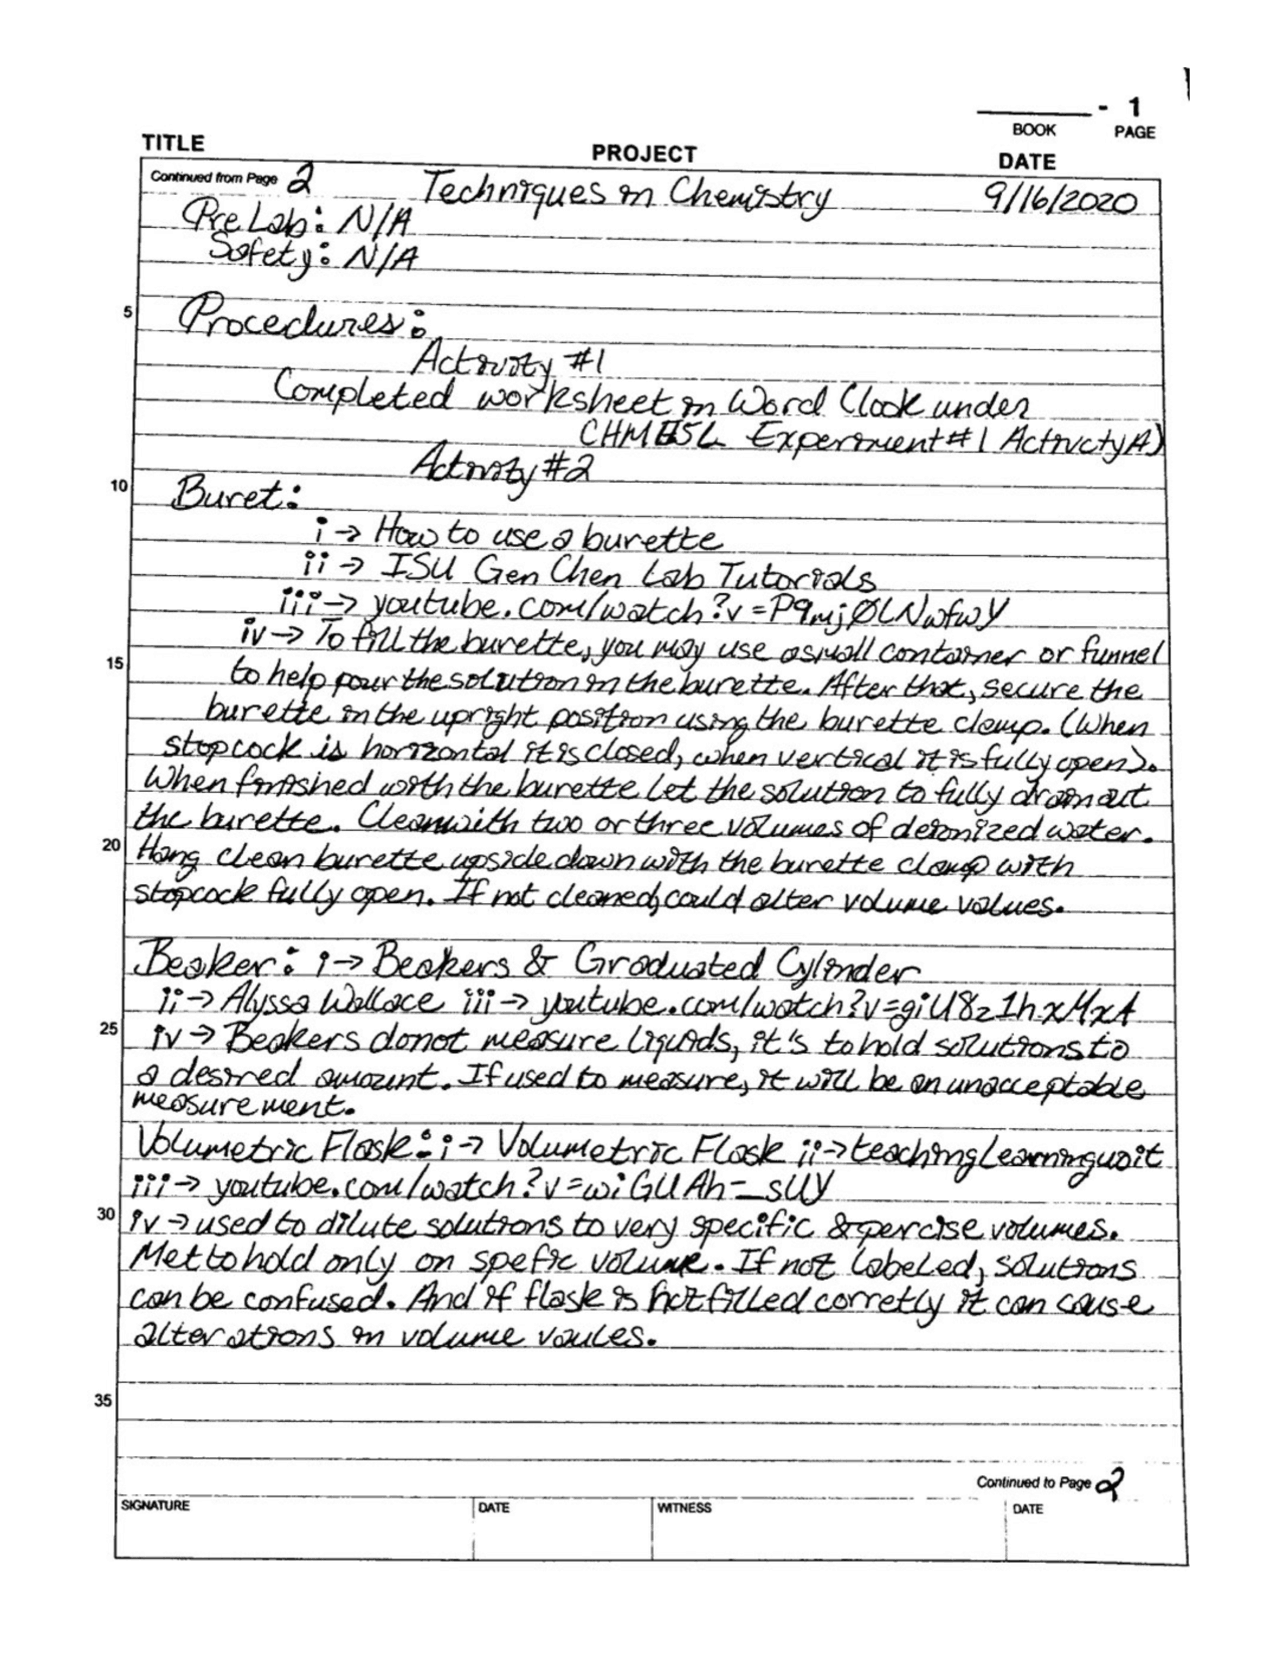 - 1
BOOK PAGE
TITLE PROJECT DATE
Continued from Page 2 Techniques in Chemistry 9/16/2020
Pre Lab: N/A
Safety: N/A
5 Procedures:
Activity #1
Completed worksheet in Word (look under
Experiment #1 Activity A)
Activity #2
10 Buret:
i → How to use a burette
ii → ISU Gen Chen Lab Tutorials
iii → youtube.com/watch?v=P9mjØLNwfwY
iv → To fill the burette, you may use a small container or funnel
15 to help pour the solution in the burette. After that, secure the
burette in the upright position using the burette clamp. (When
stopcock is horizontal it is closed, when vertical it is fully open).
When finished with the burette let the solution to fully drain out
the burette. Clean with two or three volumes of deionized water.
20 Hang clean burette upside down with the burette clamp with
stopcock fully open. If not cleaned, could alter volume values.
Beaker: i → Beakers & Graduated Cylinder
ii → Alyssa Wallace iii → youtube.com/watch?v=giU8z1hxMxA
25 iv → Beakers do not measure liquids, it's to hold solutions to
a desired amount. If used to measure, it will be an unacceptable
measurement.
Volumetric Flask: i → Volumetric Flask ii → teachinglearningunit
iii → youtube.com/watch?v=wiGUAh-_sUY
30 iv → used to dilute solutions to very specific & percise volumes.
Met to hold only on spefic volume. If not labeled, solutions
can be confused. And if flask is not filled corretly it can cause
alterations in volume vaules.
35
Continued to Page 2
SIGNATURE DATE WITNESS DATE